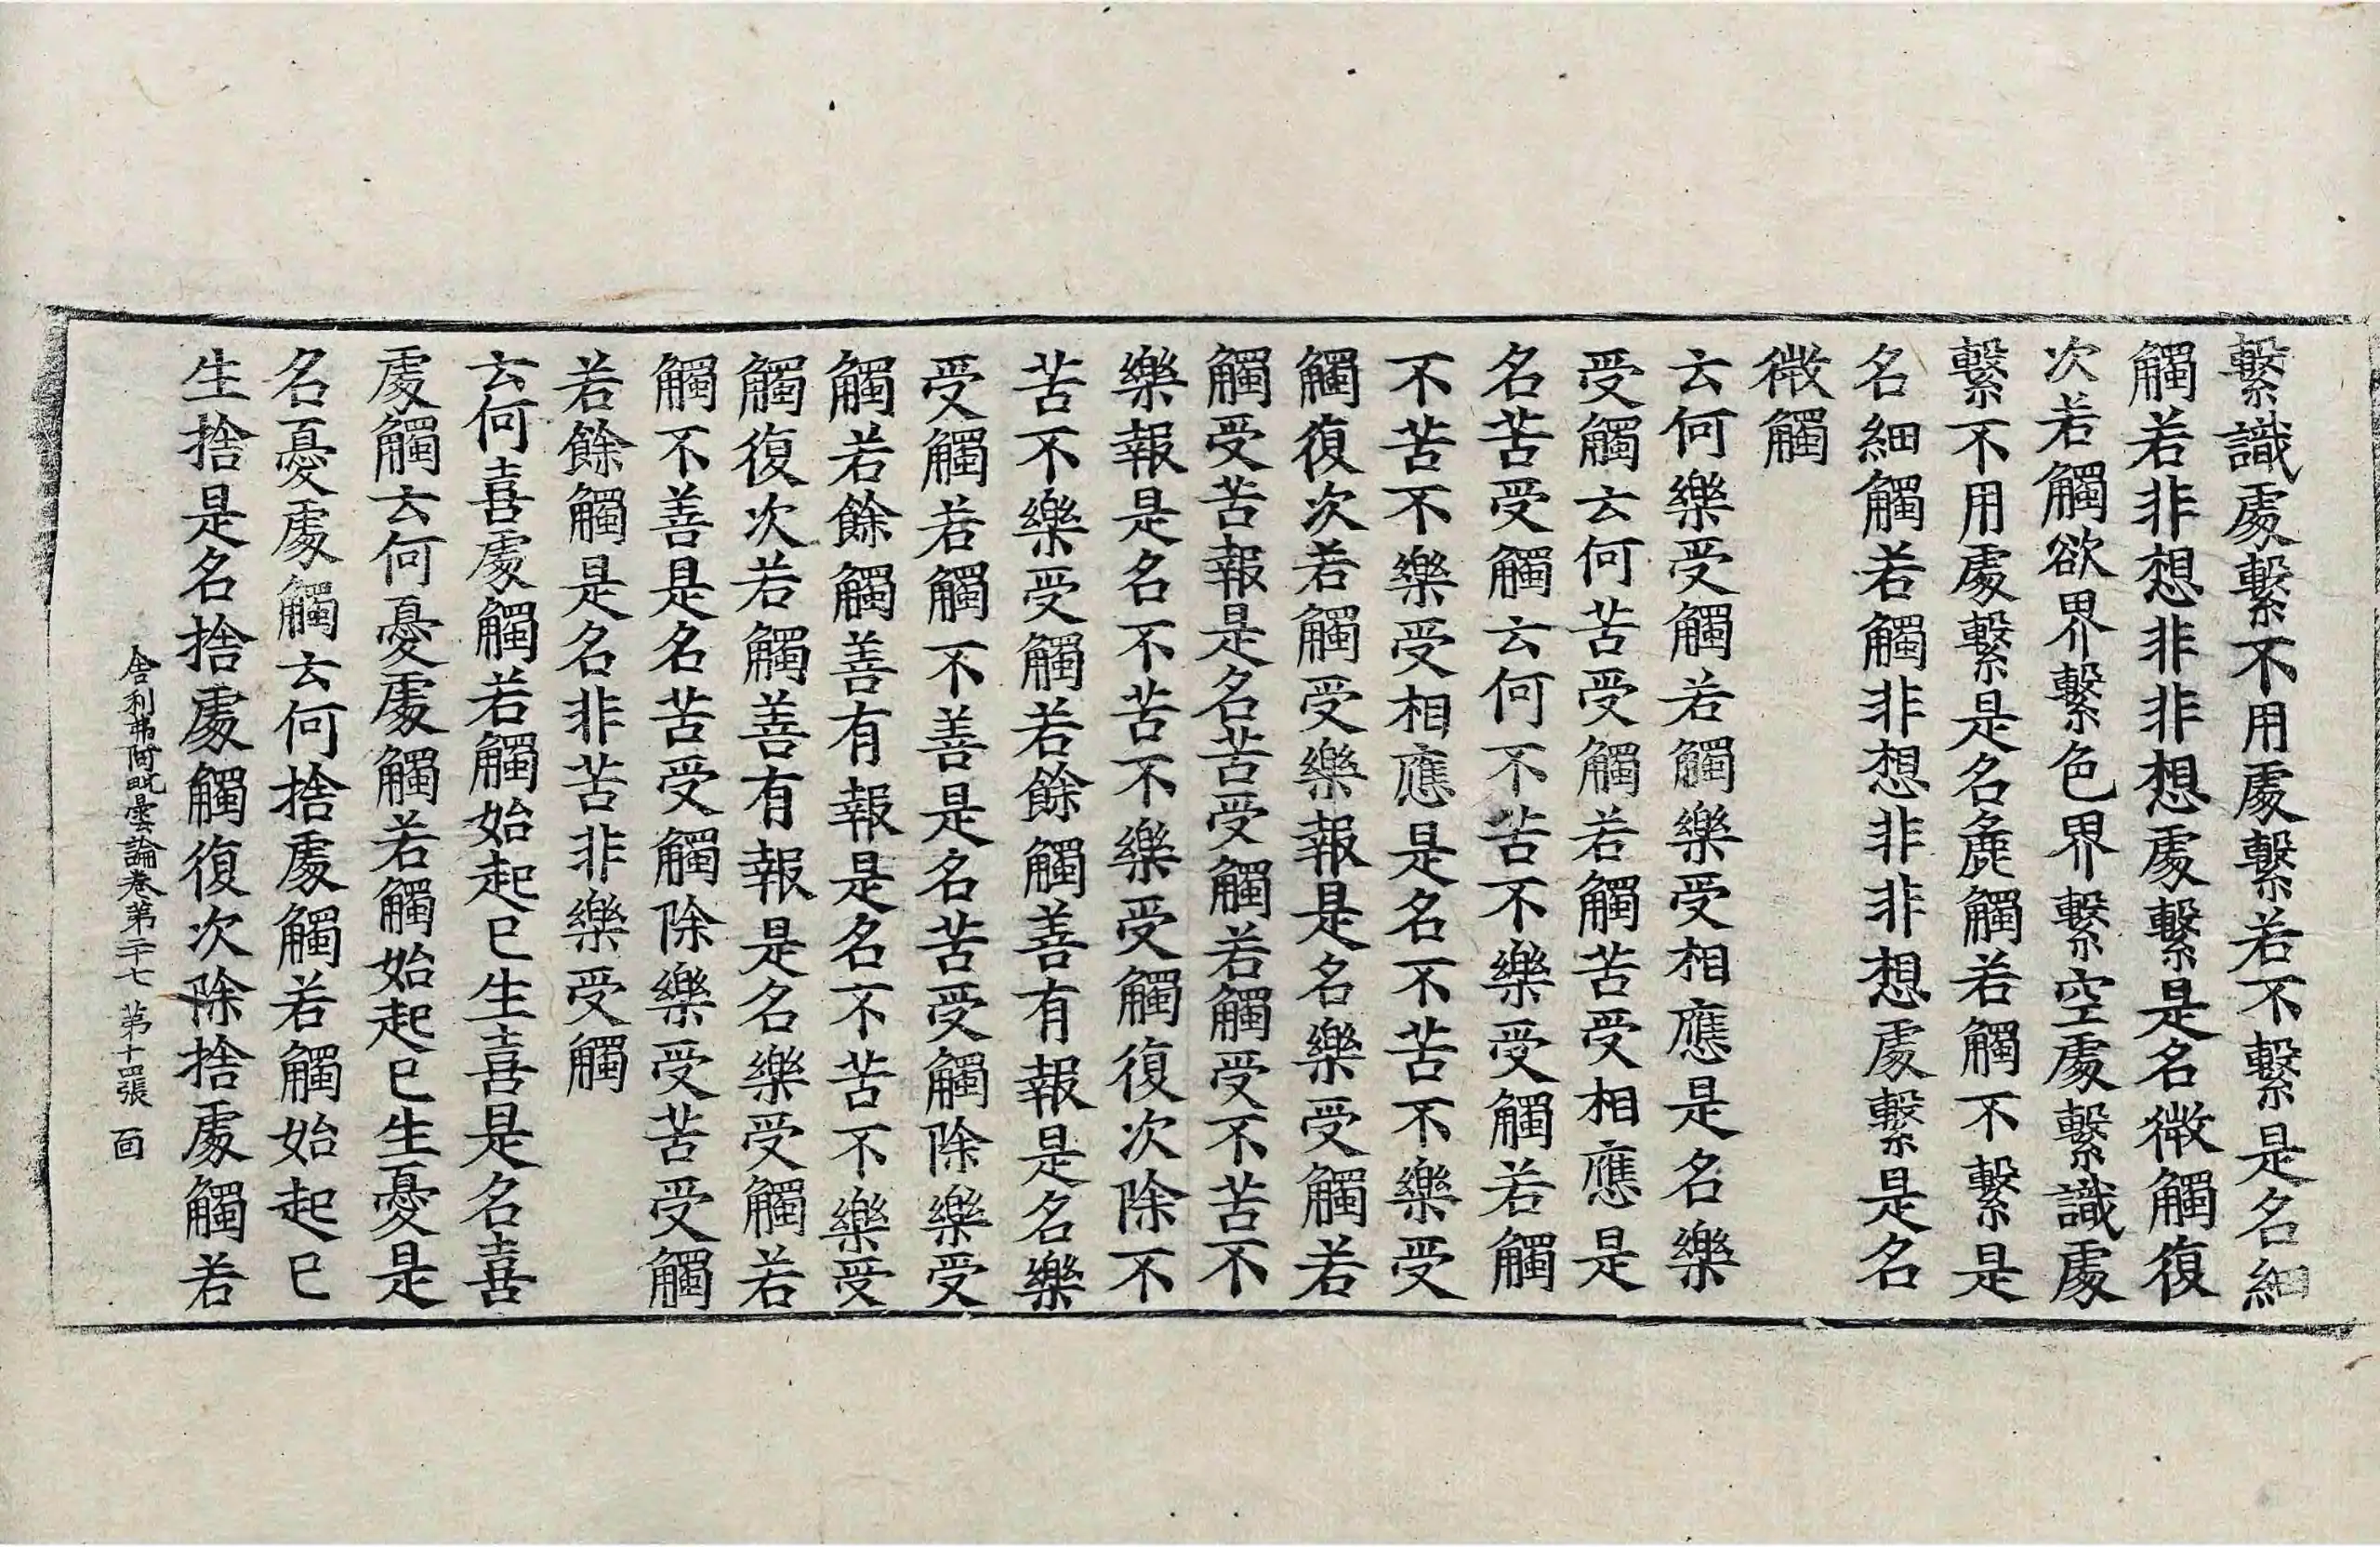 繫識處繫不用處繫若不繫是名細
觸若非想非非想處繫是名微觸復
次若觸欲界繫色界繫空處繫識處
繫不用處繫是名麁觸若觸不繫是
名細觸若觸非想非非想處繫是名
微觸
云何樂受觸若觸樂受相應是名樂
受觸云何苦受觸若觸苦受相應是
名苦受觸云何不苦不樂受觸若觸
不苦不樂受相應是名不苦不樂受
觸復次若觸受樂報是名樂受觸若
觸受苦報是名苦受觸若觸受不苦不
樂報是名不苦不樂受觸復次除不
苦不樂受觸若餘觸善有報是名樂
受觸若觸不善是名苦受觸除樂受
觸若餘觸善有報是名不苦不樂受
觸復次若觸善有報是名樂受觸若
觸不善是名苦受觸除樂受苦受觸
若餘觸是名非苦非樂受觸
云何喜處觸若觸始起已生喜是名喜
處觸云何憂處觸若觸始起已生憂是
名憂處觸云何捨處觸若觸始起已
生捨是名捨處觸復次除捨處觸若
舍利弗阿毗曇論卷第二十七 第十四張 面